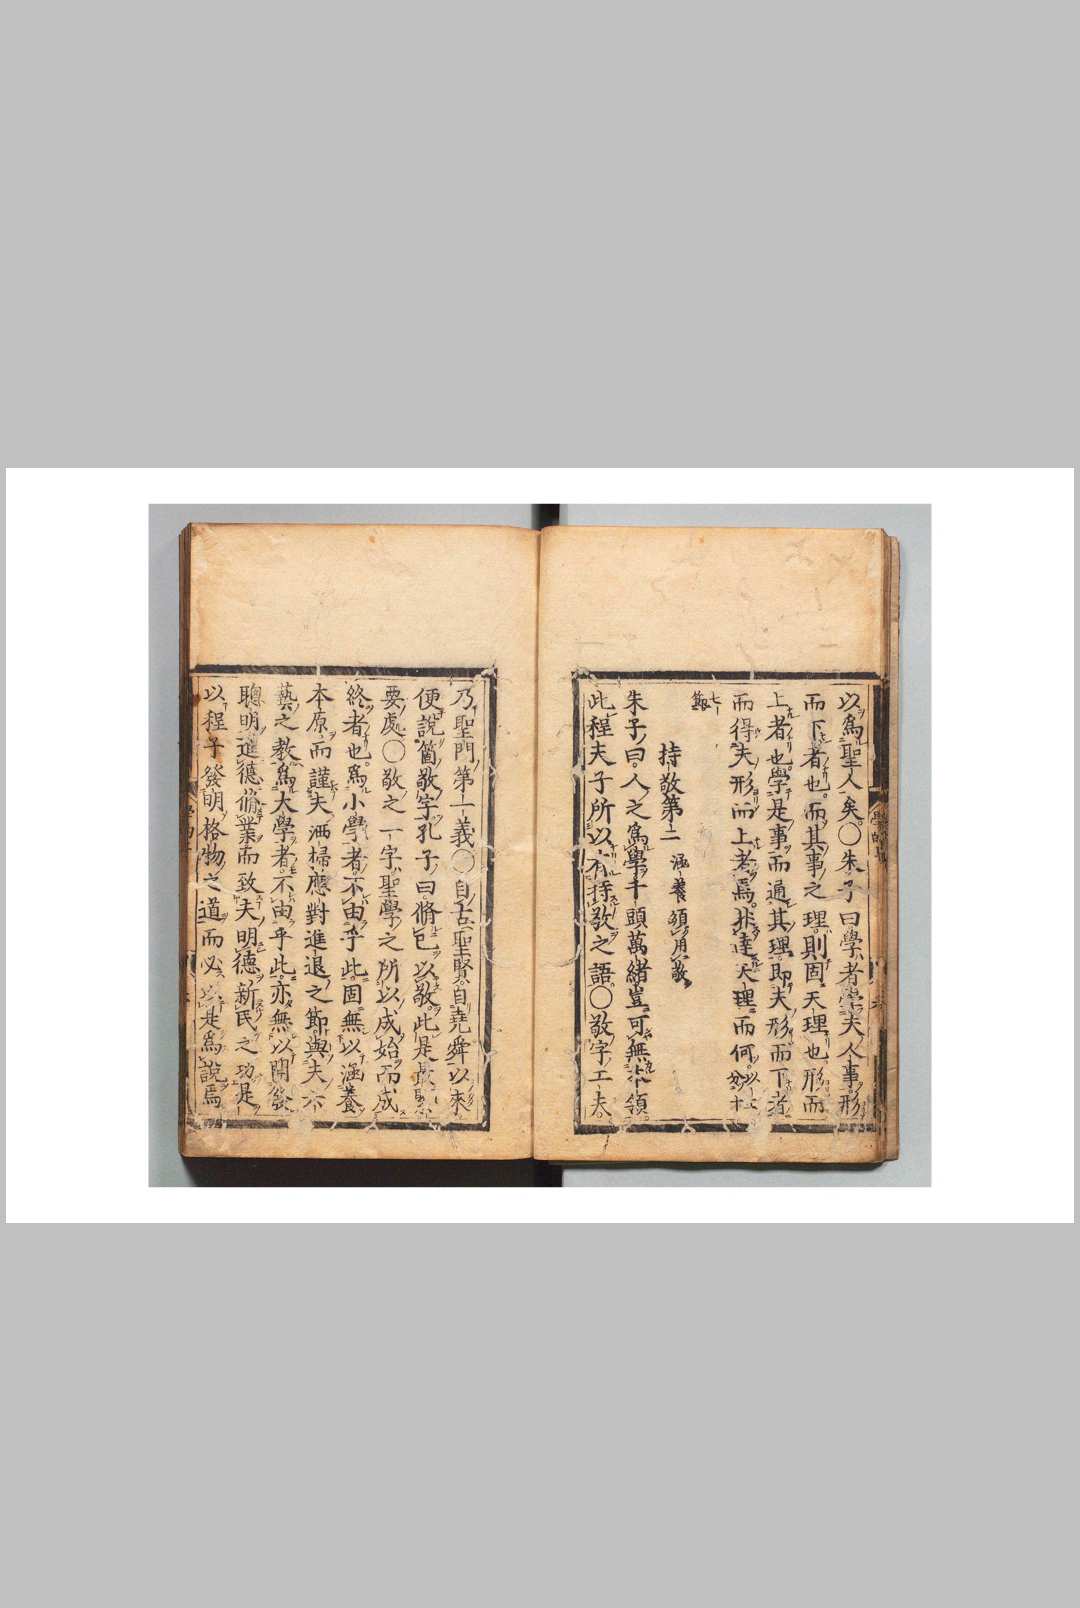 以爲聖人矣○朱子曰學者學夫人事形
而下者也而其事之理則固天理也形而
上者也學是事而通其理即夫形而下者
而得夫形而上者焉非達天理而何
凡十
七
持敬第二 涵養須用敬
朱子曰人之爲學千頭萬緒豈可無本領
此程夫子所以有持敬之語○敬字工夫
乃聖門第一義○自古聖賢自堯舜以來
便說箇敬字孔子曰脩己以敬此是最緊
要處○敬之一字聖學之所以成始而成
終者也爲小學者不由乎此固無以涵養
本原而謹夫洒掃應對進退之節與夫六
藝之教爲大學者不由乎此亦無以開發
聰明進德脩業而致夫明德新民之功是
以程子發明格物之道而必以是爲說焉